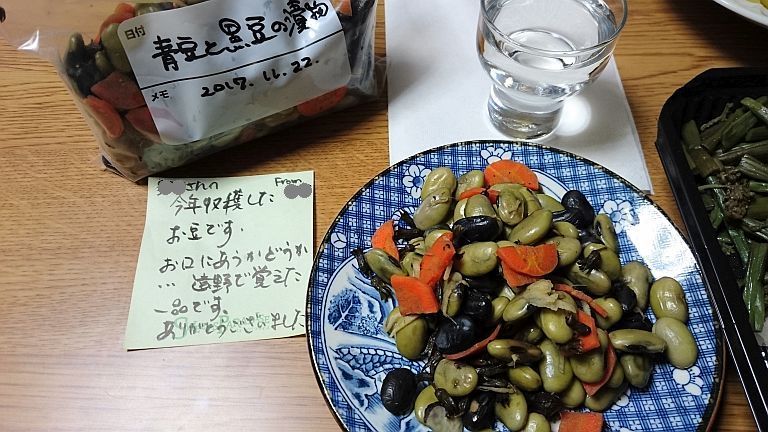 日付
青豆と黒豆の漬物
メモ
2017.11.22.
さん
From
今年収穫した
お豆です.
お口にあうかどうか
... 遠野で覚えた
一品です.
ありがとうございました